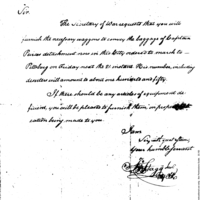 Sir.
The Secretary of War requests that you will
furnish the necessary waggons to convey the baggage of Captain
detachment now in this City ordered to march to
Pittsburg on Tuesday next the 21 instant. His number including
will amount to about one hundred and fifty.
If there should be any articles of equipment de-
ficient, you will be pleased to furnish them, on proper
cation being made to you.
I am
Sir,
Your humble servant